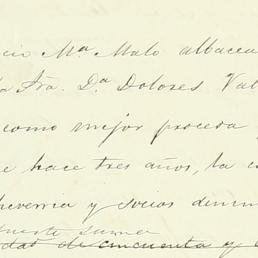 cio Mª Malo albacea
la Sra. Dª Dolores Val
como mejor proceda
e hace tres años, la c
heverria y socios denun
fuerte suma
dad de cincuenta y